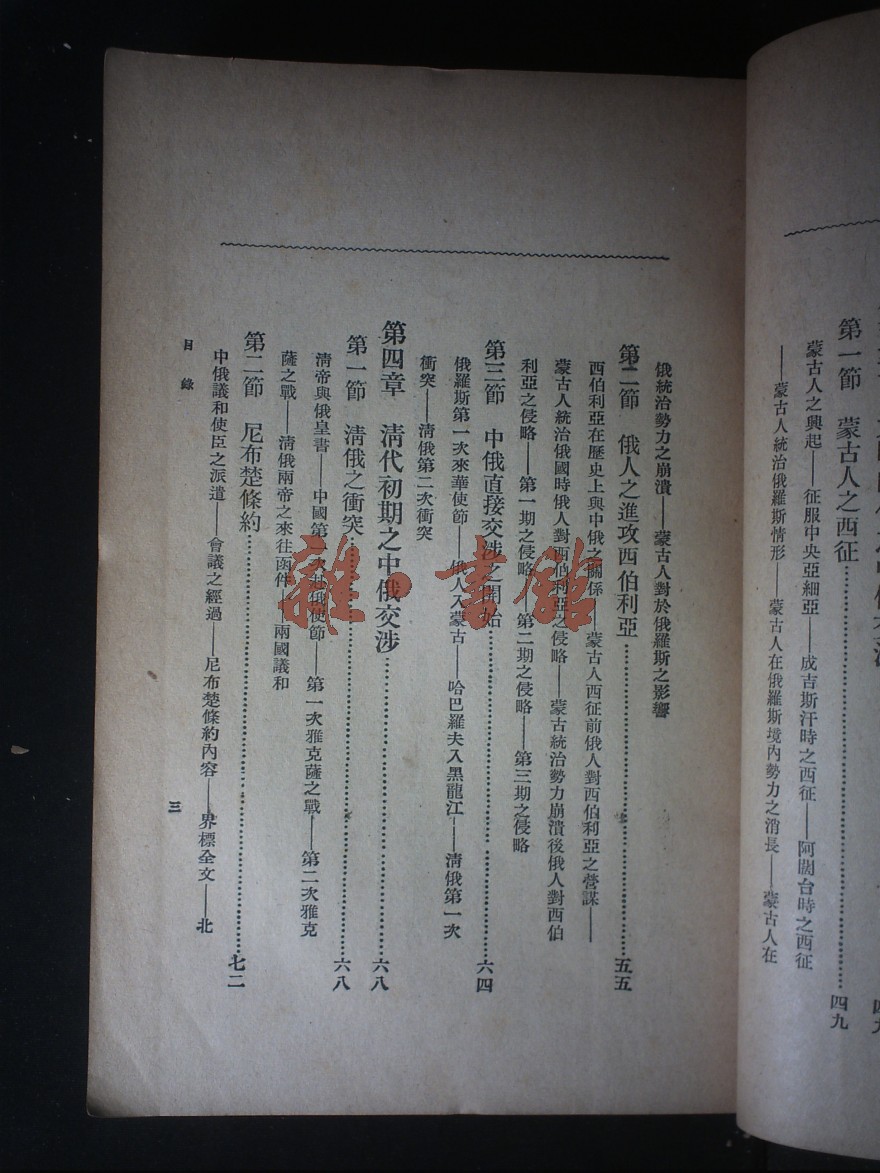 第一節　蒙古人之西征……四九
蒙古人之興起——征服中央亞細亞——成吉斯汗時之西征——阿闊台時之西征
——蒙古人統治俄羅斯情形——蒙古人在俄羅斯境內勢力之消長——蒙古人在
俄統治勢力之崩潰——蒙古人對於俄羅斯之影響
第二節　俄人之進攻西伯利亞……五五
西伯利亞在歷史上與中俄之關係——蒙古人西征前俄人對西伯利亞之營謀——
蒙古人統治俄國時俄人對西伯利亞之侵略——蒙古統治勢力崩潰後俄人對西伯
利亞之侵略——第一期之侵略——第二期之侵略——第三期之侵略
第三節　中俄直接交涉之開始……六四
俄羅斯第一次來華使節——俄人入蒙古——哈巴羅夫入黑龍江——清俄第一次
衝突——清俄第二次衝突
第四章　清代初期之中俄交涉……六八
第一節　清俄之衝突……六八
清帝與俄皇書——中國第一次赴俄使節——第一次雅克薩之戰——第二次雅克
薩之戰——清俄兩帝之來往函件——兩國議和
第二節　尼布楚條約……七二
中俄議和使臣之派遣——會議之經過——尼布楚條約內容——界標全文——北
目錄
三
雜·書館